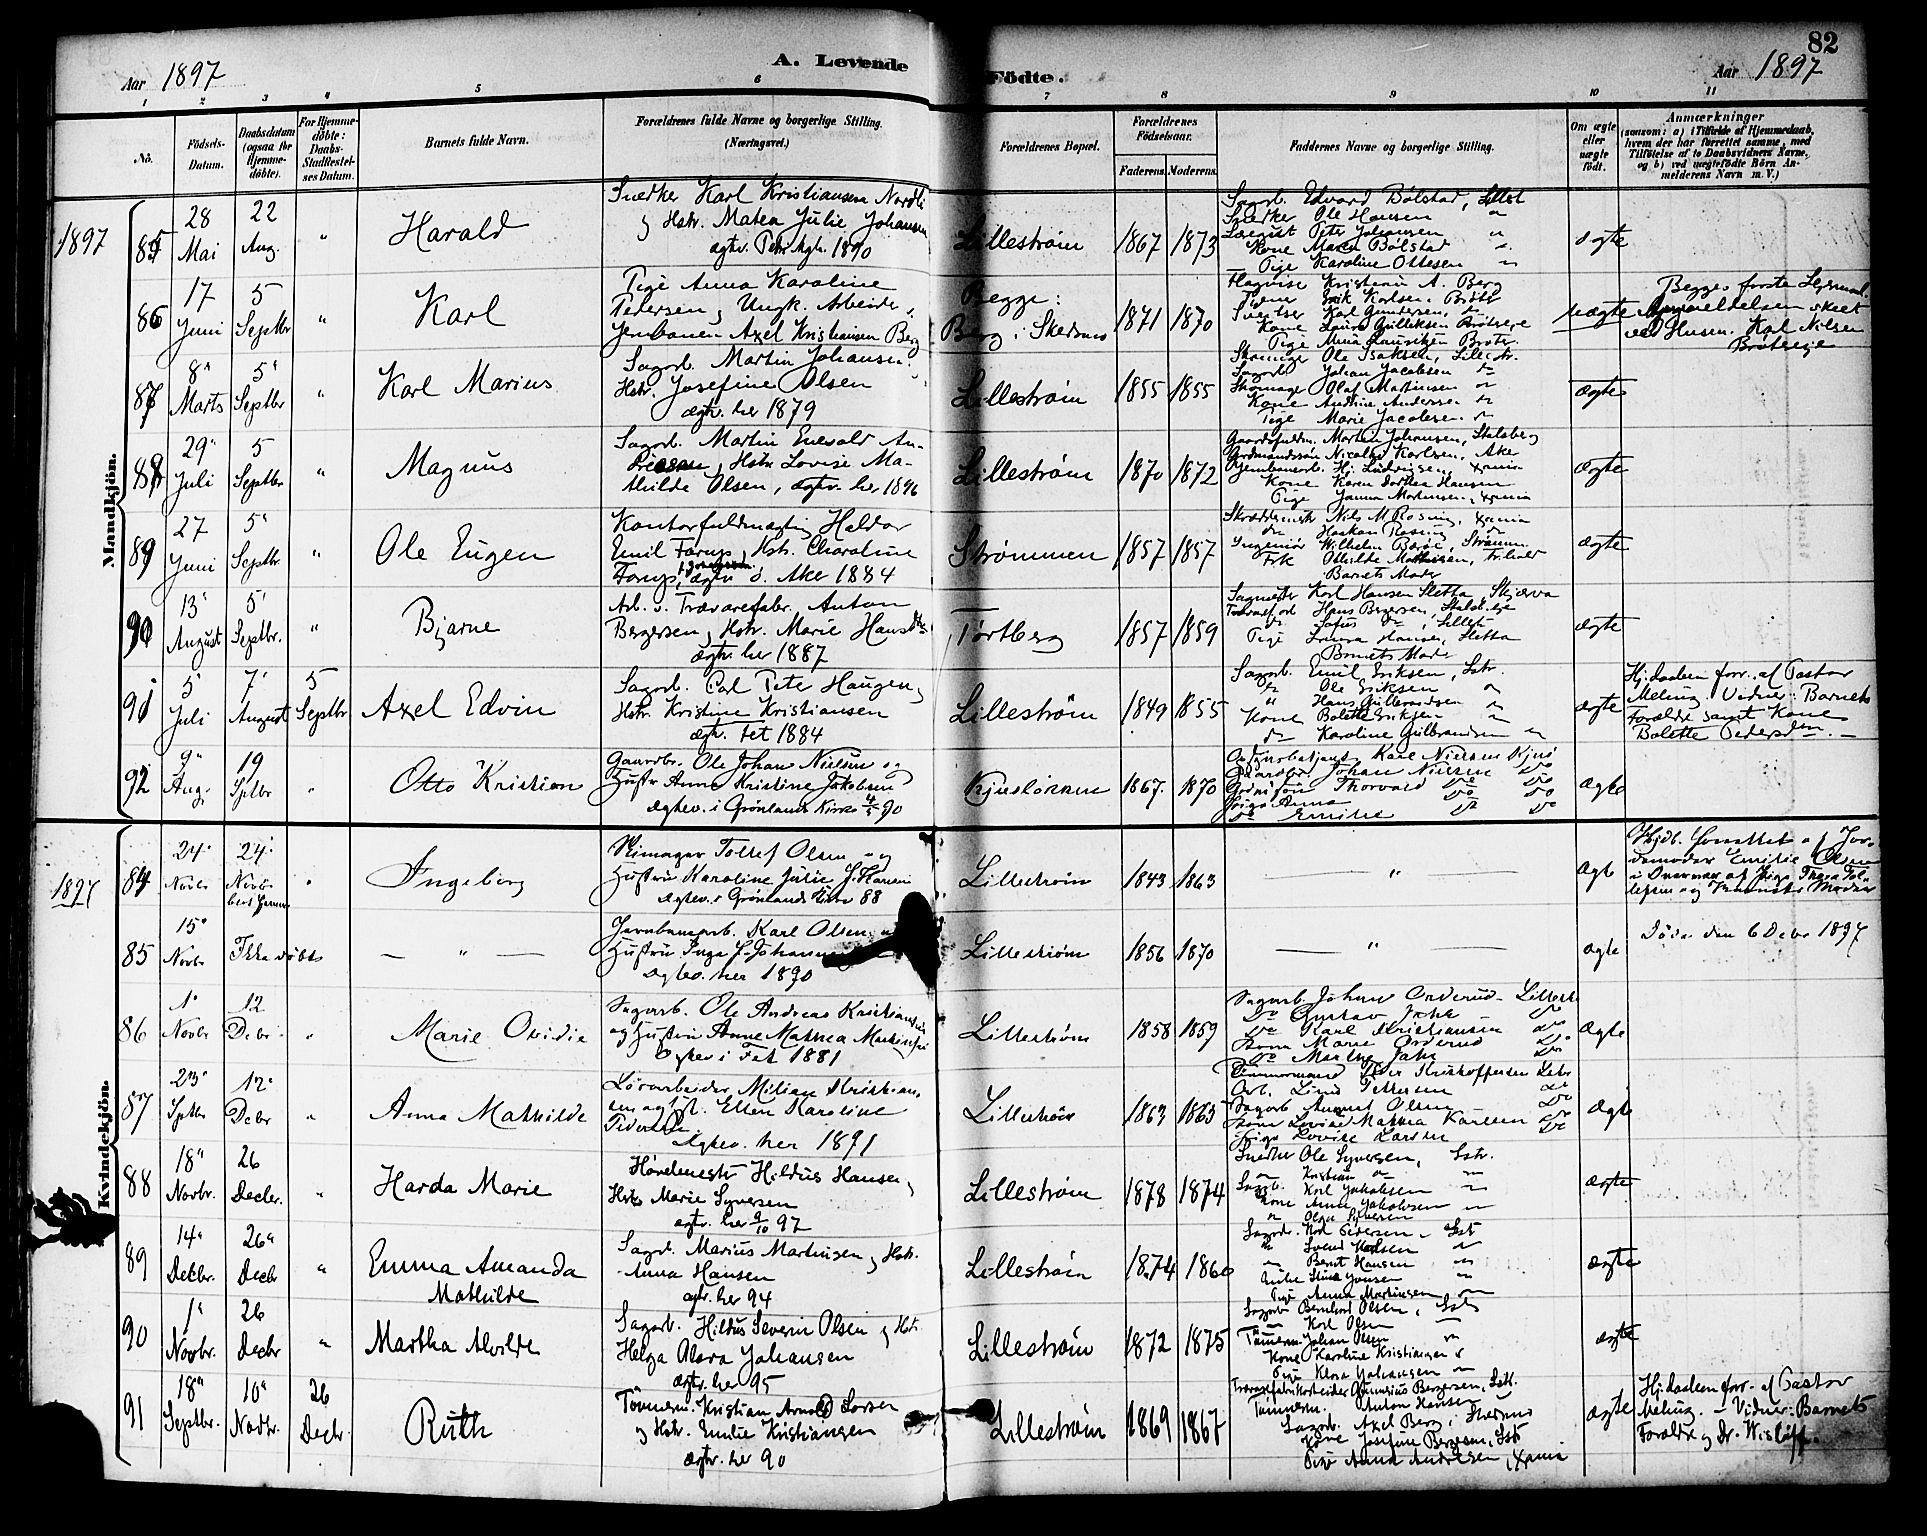 82
Aar 1897
A. Levende
Fødte.
Aar 1897
1 2 3 4 5 6 7 8 9 10 11
No.
Fødsels-Datum.
Daabsdatum (ogsaa for Hjemme-døbte).
For Hjemme-døbte: Daabs-Stadfæstel-ses Datum.
Barnets fulde Navn.
Forældrenes fulde Navne og borgerlige Stilling.
(Næringsvei.)
Forældrenes Bopæl.
Forældrenes Fødselsaar.
Faderens. Moderens.
Faddernes Navne og borgerlige Stilling.
Om ægte eller uægte født.
Anmærkninger
(saasom: a) i Tilfælde af Hjemmedaab, hvem der har forrettet samme, med Tilføielse af to Daabsvidners Navne, og b) ved uægtefødte Børn An-melderens Navn m. V.)
Mandkjøn.
1897
85
28 Mai
22 Aug.
"
Harald
Snedker Karl Kristiansen Nordli
og Hstr. Matea Julie Johansen
1890
Lillestrøm
1867 1873
Sagarb. Edvard Bølstad, Lillest
Snedker Ole Hansen
Johansen
Kone Maren Bølstad
Pige Karoline Ottesen
ægte
86
17 Juni
5 Septbr
"
Karl
Pige Anna Karoline
Pedersen og Ungk. Arbeider v.
Jernbanen Axel Kristiansen Berg
Begge:
Berg i Skedsmo
1871 1870
Kristian A. Berg
Erik Karlsen
Karl Gundersen
Kone Laura Gulliksen Brøtereie
uægte
Begges første Leiermaal.
Anmeldelsen skeet
ved Husm. Karl Nilsen
Brøtereie
87
8 Marts
5 Septbr
"
Karl Marius
Sagarb. Martin Johansen,
Hstr. Josefine Olsen
ægtv. her 1879
Lillestrøm
1855 1855
Ole Isaksen, Lillestr.
Sagarb. Johan Jacobsen
Skomager Olaf Martinsen
Kone Andrine Andersen
Pige Marie Jacobsen
ægte
88
29 Juli
5 Septbr
"
Magnus
Sagarb. Martin Enevald An-
driesen, Hstr. Lovise Ma-
thilde Olsen, ægtv. her 1896
Lillestrøm
1870 1872
Martin Johansen, Stalsberg
Gaardmandssøn Nicolay Karlsen, Aker
Jernbanearb. Hj. Ludvigsen, Xania
Kone Karen Dorthea Hansen
Pige Janna Martinsen, Xania
ægte
89
27 Juni
5 Septbr
"
Ole Eugen
Kontorfuldmægtig Haldor
Emil Farup, Hstr. Charoline
Farup, ægtv i V. Aker 1884
Strømmen
1857 1857
Nils M Rosing, Xania
Haakon Rosing
Ingeniør Wilhelm Barøe, Strømm.
Frk Othilde Mathisen, Fr.hald
Barnets Moder
ægte
90
13 August
5 Septbr.
"
Bjarne
Arb. v. Trævarefabr. Anton
Bergersen og Hstr. Marie Hansdtr
ægtv. her 1887
Tørtberg
1857 1859
Sagmester Karl Hansen Sletta, Skjærva
Hans Bergersen
Pige Laura Hansen, Sletta
Barnets Moder
ægte
91
5 Juli
7 August
5 Septbr
Axel Edvin
Sagarb. Carl Peter Haugen,
Hstr. Kristine Kristiansen
ægtv. Fet 1884
Lillestrøm
1849 1855
Sagarb. Emil Eriksen, Lstr.
Ole Eriksen
Hans Gulbrandsen
Kone Bolette Eriksen
Karoline Gulbrandsen
ægte
Hj.daaben forr. af Pastor
Mehug. Vidner: Barnets
Forældre samt Kone
Bolette Pedersdtr.
92
9 Aug.
19 Sptbr
"
Otto Kristian
Gaardbr. Ole Johan Nielsen og
Hustr. Anne Kristine Jakobsen
Ægtev. i Grønlands Kirke 4/5 90
1867. 1870
Karl Nielsen
Gaardbr. Johan Nielsen Do
Thorvald Do Do
Pige Anna
Do Emilie Do Do
Ægte
Kvindekjøn.
1897
84
24 Novbr
24 Novbr
"
Ingeborg
Skomager Tollef Olsen og
Hustru Karoline Julie J. Hansen
Ægtev. i Grønlands Kirke 88
Lillestrøm
1843 1863
"
Ægte
Hjdb. forrettet af Jor-
demoder Emilie Olsen
85
15 Novbr
Ikke døbt
— " —
Jernbanearb. Karl Olsen og
Hustru Inga J. Johannesen
Ægtev. her 1890
Lillestrøm
1856 1870
"
ægte
Døde den 6 Debr 1897
86
1 Novbr
12 Debr
"
Marie Ovidie
Sagarb. Ole Andreas Kristiansen
og Hustru Anne Mathea Martinsen
Ægtev i Fet 1881
Lillestrøm
1858 1859
Sagarb. Johan Orderud Lillestr.
Do Gustav Jahr Do
Do Karl Kristiansen Do
Kone Marie Orderud Do
Do Marthe Jahr Do
Ægte
87
23 Sptbr
12 Debr
"
Anna Mathilde
Løsarbeider Milian Kristian-
sen og H. Ellen Karoline
Pedersen
Ægtev. her 1891
Lillestrøm
1863 1863
Tømmermand Peder Kristoffersen Lstr
Arb. Linus Pettersen Do
Sagarb August Olsen Do
Kone Lovise Mathea Karlsen Do
Pige Lovise Larsen Do
Ægte
88
18 Novbr.
26 Decbr.
"
Harda Marie
Høvlemestr Hildus Hansen,
Hstr Marie Syversen
ægtv. her 9/10 97
Lillestrøm
1878 1874
Snedker Ole Syversen, Lstr.
Kristian
Sagb. Karl Jakobsen
Kone Anna Jakobsen
Olga Syversen
ægte
89
14 Decbr.
26 Decbr
"
Emma Amanda
Mathilde
Sagarb. Marius Martinsen og Hstr.
Anna Hansen
ægtv. her 94
Lillestrøm
1874 1860
Sagarb. Karl Pedersen, Lstr
Svend Madsen
Bernt Hansen
Enke Stina Jonsen
Pige Anna Martinsen
ægte
90
1 Novbr.
26 Decbr
"
Martha Alvilde
Sagarb. Hildus Severin Olsen og Hstr.
Helga Alara Johansen
ægtv. her 95
Lillestrøm
1872 1875
Sagarb. Bernhard Olsen, Lstr
Karl Olsen
Tømmerm. Johan Olsen
Kone Karoline Kristiansen
Pige Klara Johansen
ægte
91
18 Septbr.
10 Novbr.
26 Decbr.
Ruth
Tømmerm. Kristian Arnold Larsen
og Hstr. Emilie Kristiansen
ægtv. her 90
Lillestrøm
1869 1867
Trævarefabrikarbeider Asmusius Bergersen, Lstr.
Tømmerm. Anton Hansen
Sagarb. Axel Berg, Skedsmo
Kone Josefine Bergersen, Lstr
Pige Anna Andresen, Xania
ægte
Hj.daaben forr. af Pastor
Mehug. – Vidner: Barnets
Forældre og Dr. Wisløff.